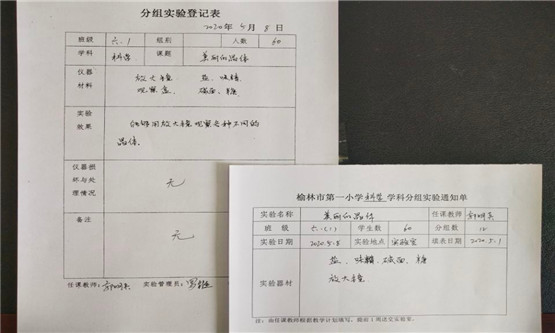 分组实验登记表
2020年5月8日
班级 六.1 组别 人数 60
学科 科学 课题 美丽的晶体
仪器材料 放大镜 盐、味精
观察盒、碱面、糖
实验效果 能够用放大镜观察各种不同的
晶体.
仪器损坏与处理情况 无
备注 无
任课教师: 实验管理员:
榆林市第一小学科学学科分组实验通知单
实验名称 美丽的晶体 任课教师
班 级 六.(1) 学生数 60 分组数 12
实验日期 2020.5.8 实验地点 实验室 填表日期 2020.5.1
实验器材 盐、味精、碱面、糖
放大镜.
注:由任课教师根据教学计划填写,提前1周送交实验室.